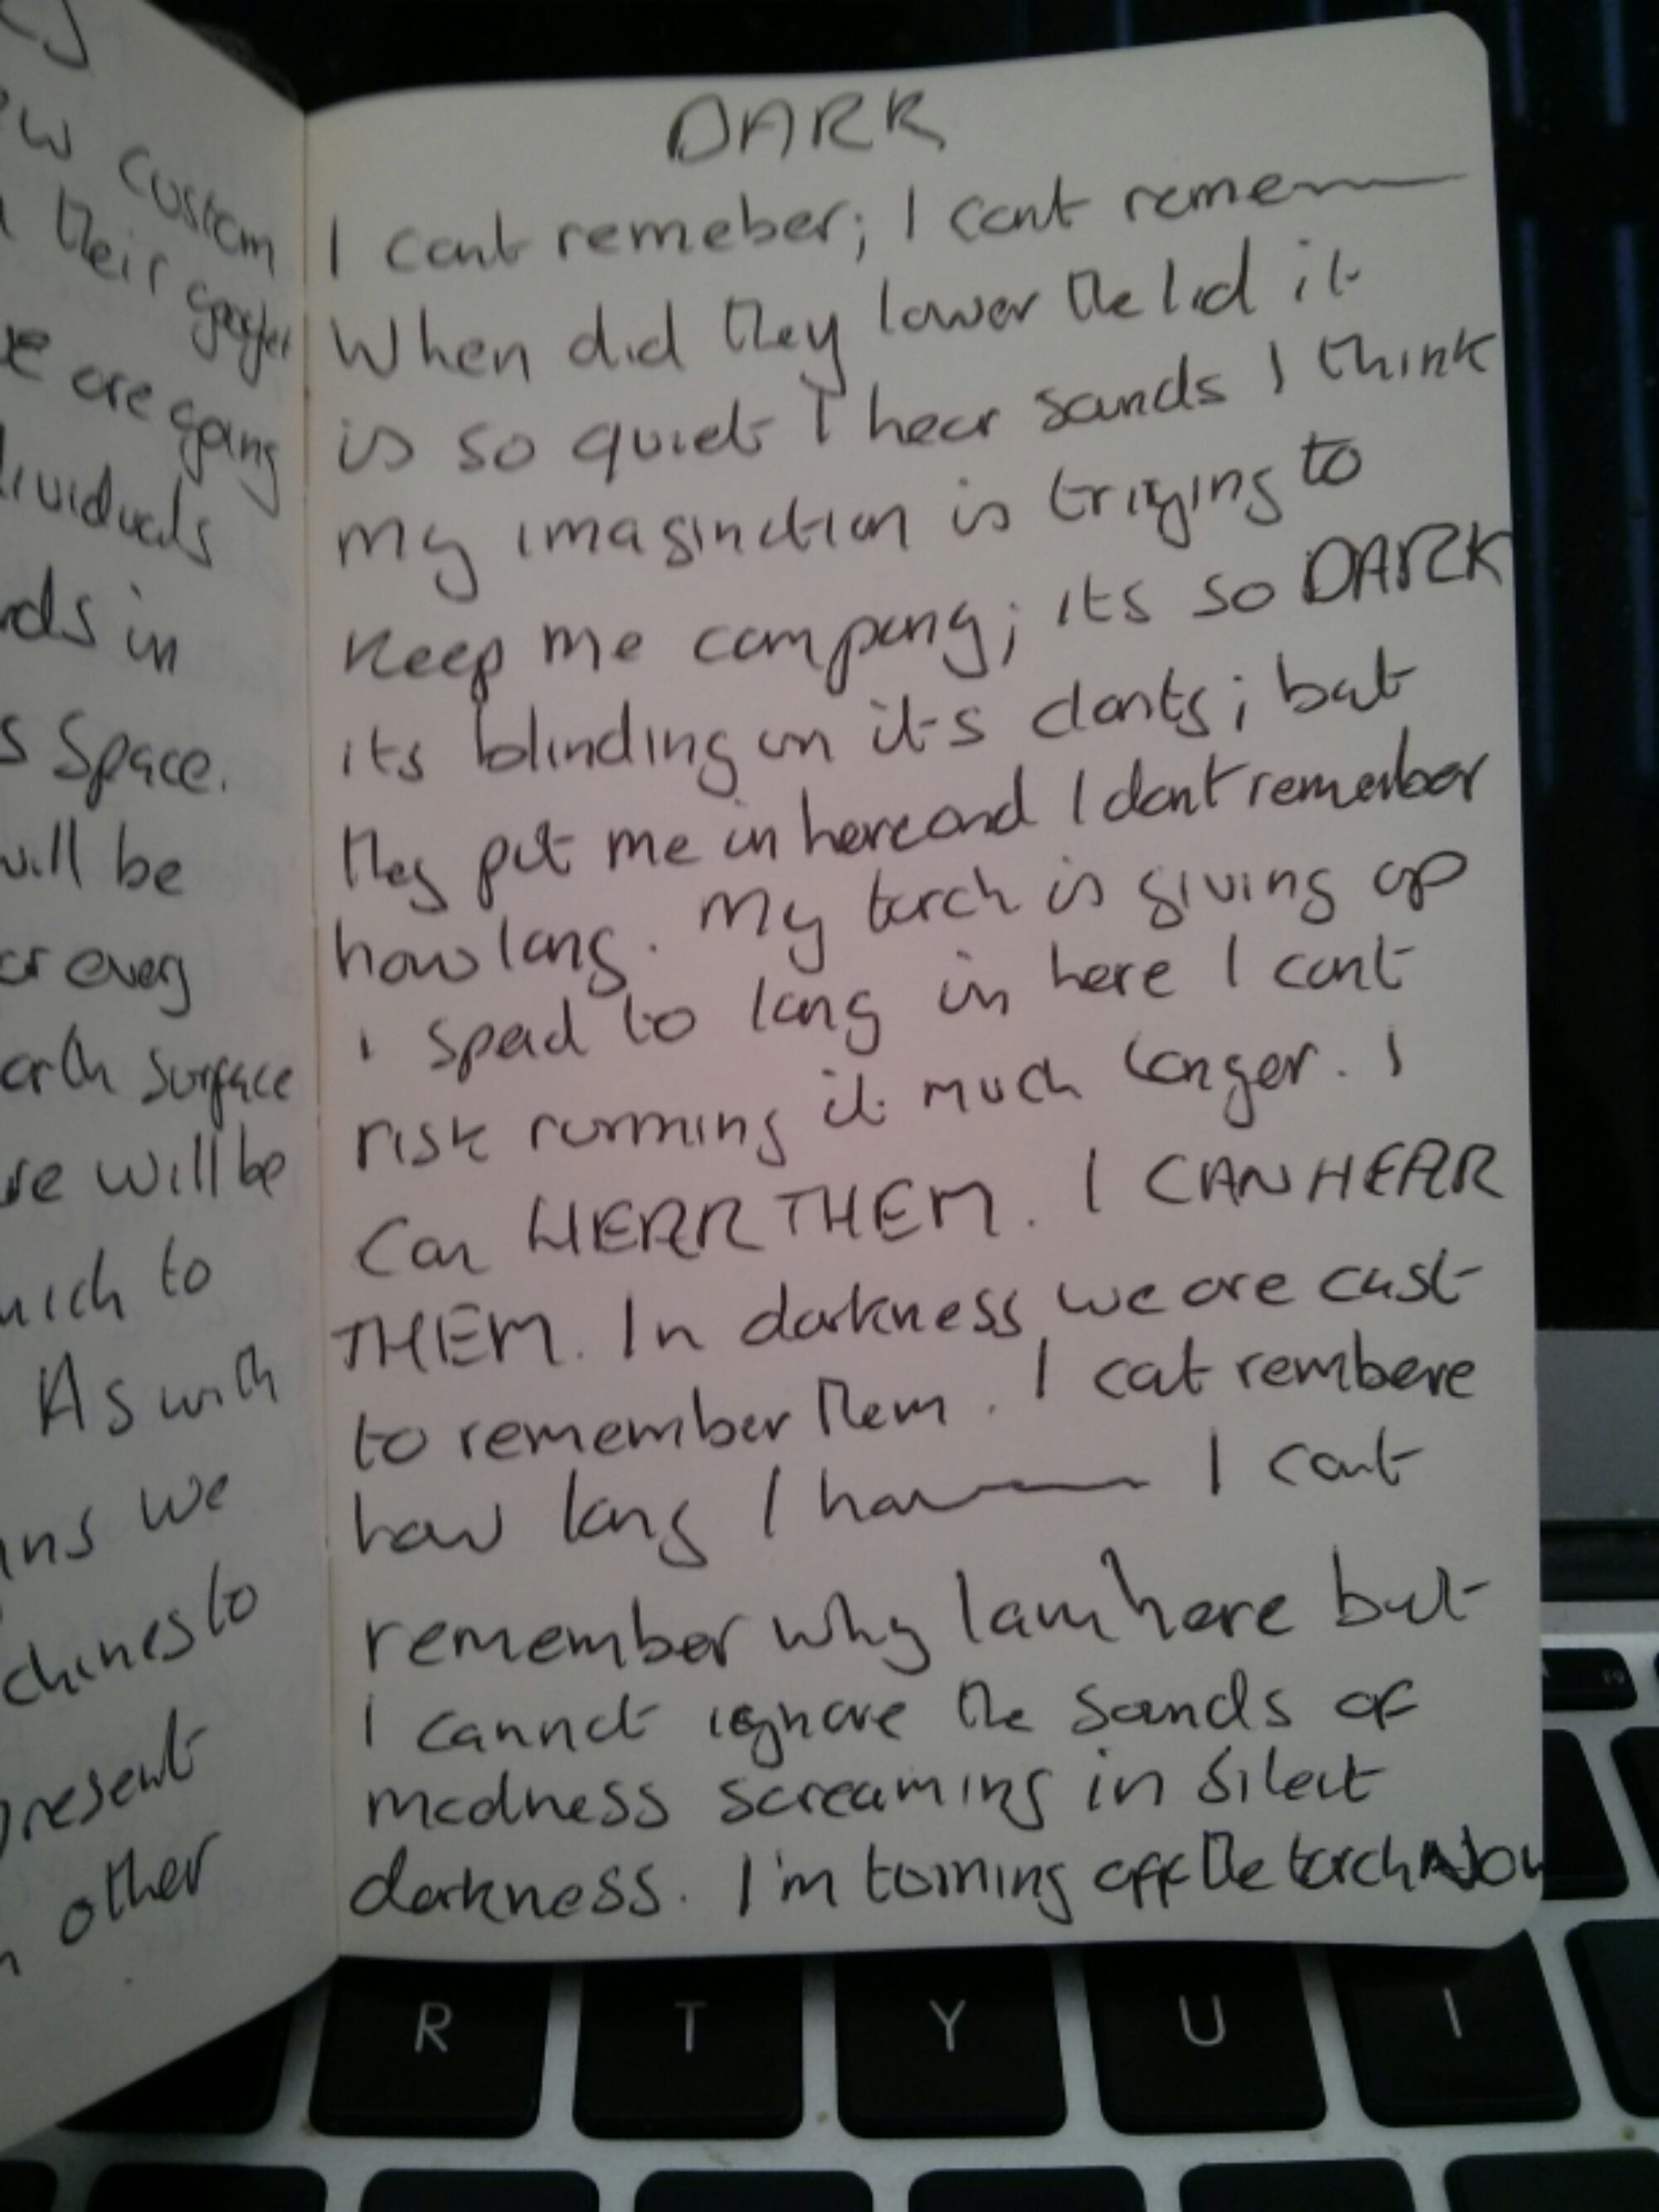 ew custom
their
are going
dividuals
rds in
s Space.
will be
or every
arth surface
re will be
which to
As with
ans we
chines to
present
other
DARK
I cant remeber; I cant reme
When did they lower the lid it
is so quiet I hear sounds I think
my imagination is trying to
keep me company; its so DARK
its blinding in its
; but
they put me in here and I dont remember
how long. My torch is giving up
i spend to long in here I cant
risk running it much longer. I
can HEAR THEM. I CAN HEAR
THEM. In darkness we are cast
to remember them. I cat rembere
how long I ha I cant
remember why I am here but
I cannot ignore the sounds of
madness screaming in silect
darkness. I'm torning off the torch Now
R T Y U I